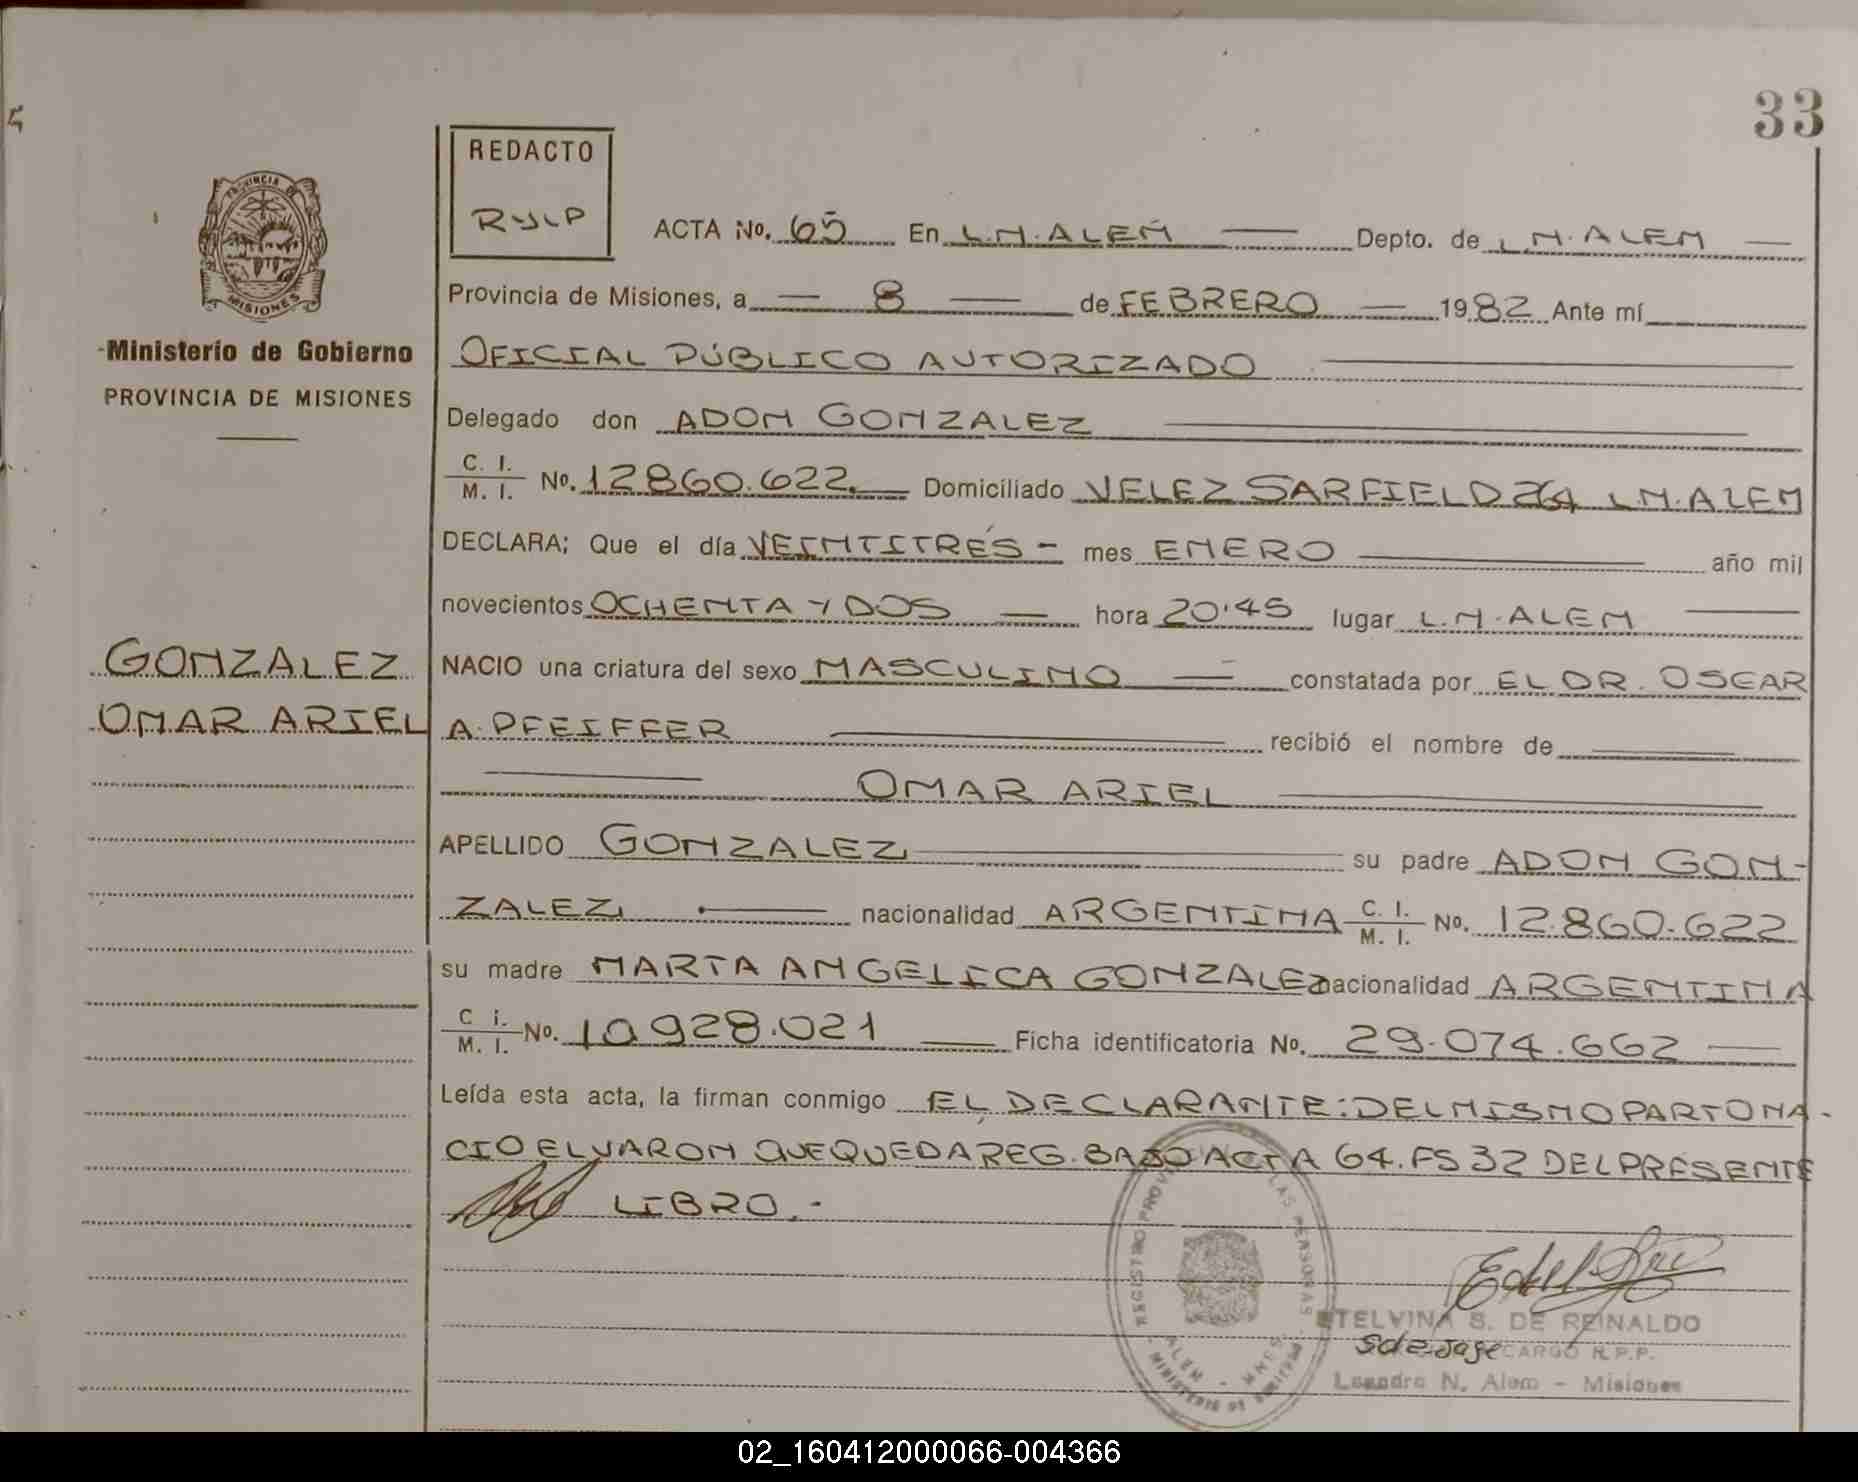 33
REDACTO
RYLP
PROVINCIA DE
MISIONES
Ministerio de Gobierno
PROVINCIA DE MISIONES
GONZALEZ
OMAR ARIEL
ACTA No. 65 En L.N. ALEM Depto. de L.N. ALEM
Provincia de Misiones, a 8 de FEBRERO 1982 Ante mí
OFICIAL PÚBLICO AUTORIZADO
Delegado don ADON GONZALEZ
C. I. / M. I. No. 12860.622 Domiciliado VELEZ SARFIELD 264 L.N. ALEM
DECLARA; Que el día VEINTITRÉS - mes ENERO año mil
novecientos OCHENTA Y DOS hora 20'45 lugar L.N. ALEM
NACIO una criatura del sexo MASCULINO constatada por EL DR. OSCAR
A. PFEIFFER recibió el nombre de
OMAR ARIEL
APELLIDO GONZALEZ su padre ADON GON-
ZALEZ nacionalidad ARGENTINA C. I. / M. I. No. 12.860.622
su madre MARTA ANGELICA GONZALEZ nacionalidad ARGENTINA
C i. / M. I. No. 10928.021 Ficha identificatoria No. 29.074.662
Leída esta acta, la firman conmigo EL DECLARANTE: DEL MISMO PARTO NA-
CIO EL VARON QUE QUEDA REG. BAJO ACTA 64. FS 32 DEL PRESENTE
LIBRO.-
REGISTRO PROV LAS PERSONAS
ALEM - MNES
MINISTERIO DE GOBIERNO
ETELVINA S. DE REINALDO
CARGO R.P.P.
Leandro N. Alem - Misiones
02_160412000066-004366